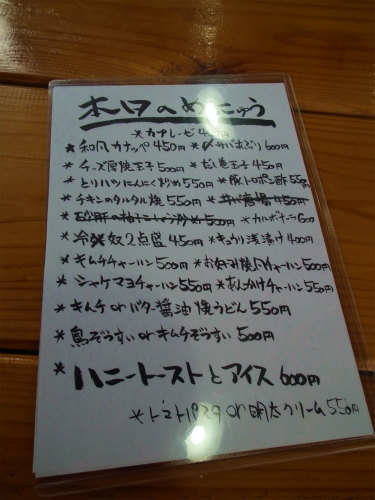 本日のめにゅう
*カプレーゼ 450円
*和風カナッペ 450円 *〆サバあぶり 600円
*チーズ厚焼玉子 500円 *だし巻玉子 450円
*とりハツにんにく炒め 550円 *豚トロポン酢 550円
*チキンのタルタル焼 550円 450円
*砂肝の柚子こしょう炒め 500円 *カルボナーラ 600
*冷奴2点盛 450円 *キュウリ浅漬け 400円
*キムチチャーハン 500円 *お好み焼風チャーハン 500円
*シャケマヨチャーハン 550円 *あんかけチャーハン 550円
*キムチorバター醤油焼うどん 550円
*鳥ぞうすいorキムチぞうすい 500円
*ハニートーストとアイス 600円
*トマトパスタor明太クリーム 550円